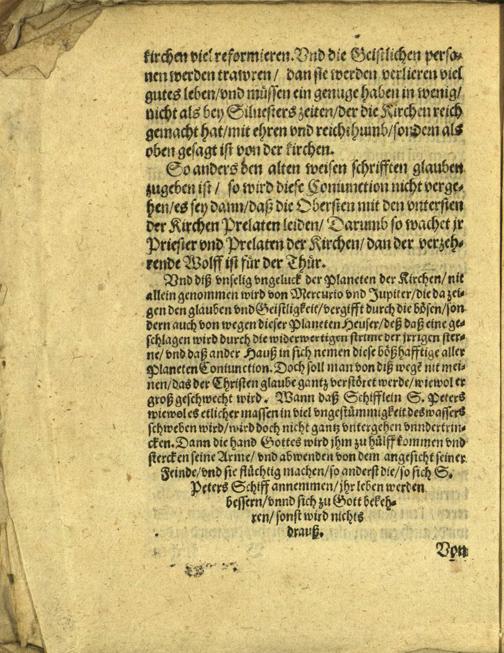 kirchen viel reformieren. Vnd die Geistlichen perso-
nen werden trawren / dan sie werden verlieren viel
gutes leben/vnd müssen ein genuge haben in wenig/
nicht als bey Siluesters zeiten/der die Kirchen reich
gemacht hat/mit ehren vnd reichthumb/sondern als
oben gesagt ist von der kirchen.
So anders den alten weisen schrifften glauben
zugeben ist / so wird diese Coniunction nicht verge-
hen/es sey dann/daß die Obersten mit den vntersten
der Kirchen Prelaten leiden/ Darumb so wachet jr
Priester vnd Prelaten der Kirchen/ dan der verzeh-
rende Wolff ist für der Thür.
Vnd diß vnselig vngeluck der Planeten der Kirchen/ nit
allein genommen wird von Mercurio vnd Jupiter/die da zei-
gen den glauben vnd Geistligkeit/vergifft durch die bösen/son
dern auch von wegen dieser Planeten Heuser/deß daß eine ge-
schlagen wird durch die widerwertigen strime der jrrigen ster-
ne/ vnd daß ander Hauß in sich nemen diese bößhafftige aller
Planeten Coniunction. Doch soll man von diß wege nit mei-
nen/das der Christen glaube gantz verstöret werde/wiewol er
groß geschwecht wird. Wann daß Schifflein S. Peters
wiewol es etlicher massen in viel vngestümmigkeit des wassers
schweben wird/wird doch nicht gantz vntergehen vnndertrin-
cken. Dann die hand Gottes wird jhm zu hülff kommen vnd
stercken seine Arme/ vnd abwenden von dem angesicht seiner
Feinde/vnd sie flüchtig machen/so anderst die/so sich S.
Peters Schiff annemmen/jhr leben werden
bessern/vnnd sich zu Gott bekeh-
ren/sonst wird nichts
drauß.
Von